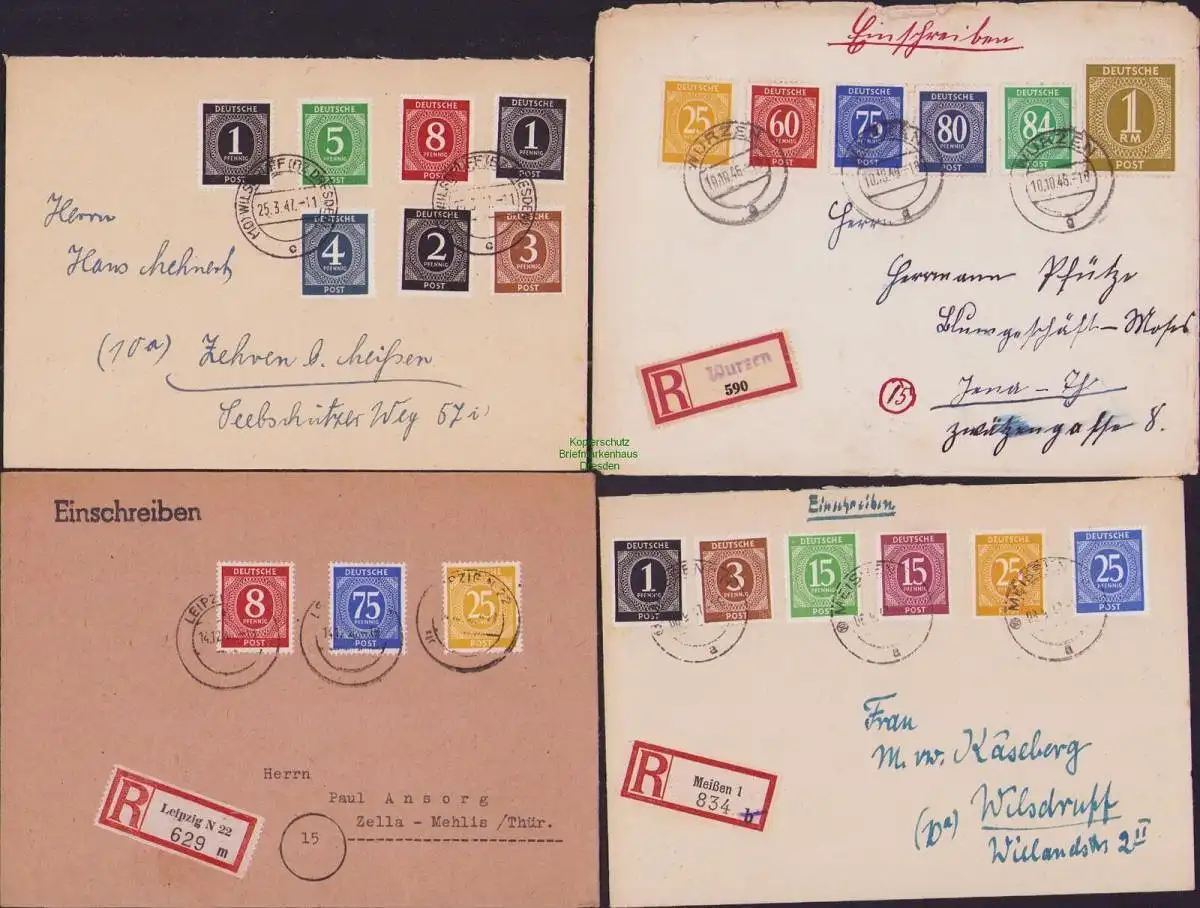 DEUTSCHE
1
PFENNIG
POST
DEUTSCHE
5
PFENNIG
POST
DEUTSCHE
8
PFENNIG
POST
DEUTSCHE
1
PFENNIG
POST
DEUTSCHE
4
PFENNIG
POST
DEUTSCHE
2
PFENNIG
POST
DEUTSCHE
3
PFENNIG
POST
25.3.47.-11
c
c
Herrn
Hans Mehnert
(10a) Zehren b. Meißen
Seebschützer Weg 57 i
Einschreiben
DEUTSCHE
25
DEUTSCHE
60
PFENNIG
POST
DEUTSCHE
75
POST
DEUTSCHE
80
PFENNIG
POST
DEUTSCHE
84
PFENNIG
DEUTSCHE
1
RM
POST
WURZEN
10.10.46.-18
a
10.10.46.-18
a
WURZEN
10.10.46.-18
a
Herrn
Herrmann Pfütze
Blumgeschäft - Moses
Jena - Th
Zwätzengasse 8.
R Wurzen
590
15
Kopierschutz
Briefmarkenhaus
Dresden
Einschreiben
DEUTSCHE
8
PFENNIG
POST
DEUTSCHE
75
PFENNIG
POST
25
PFENNIG
POST
LEIPZIG N 22
14.12
Herrn
Paul Ansorg
Zella - Mehlis /Thür.
R Leipzig N 22
629 m
15
Einschreiben
DEUTSCHE
1
PFENNIG
POST
DEUTSCHE
3
PFENNIG
POST
DEUTSCHE
15
PFENNIG
POST
DEUTSCHE
15
PFENNIG
POST
DEUTSCHE
25
PFENNIG
POST
DEUTSCHE
25
PFENNIG
POST
MEISSEN
a
MEISSEN
a
MEISSEN
a
Frau
M. vw. Käseberg
(10a) Wilsdruff
Wielandstr 2 II
R Meißen 1
834 b